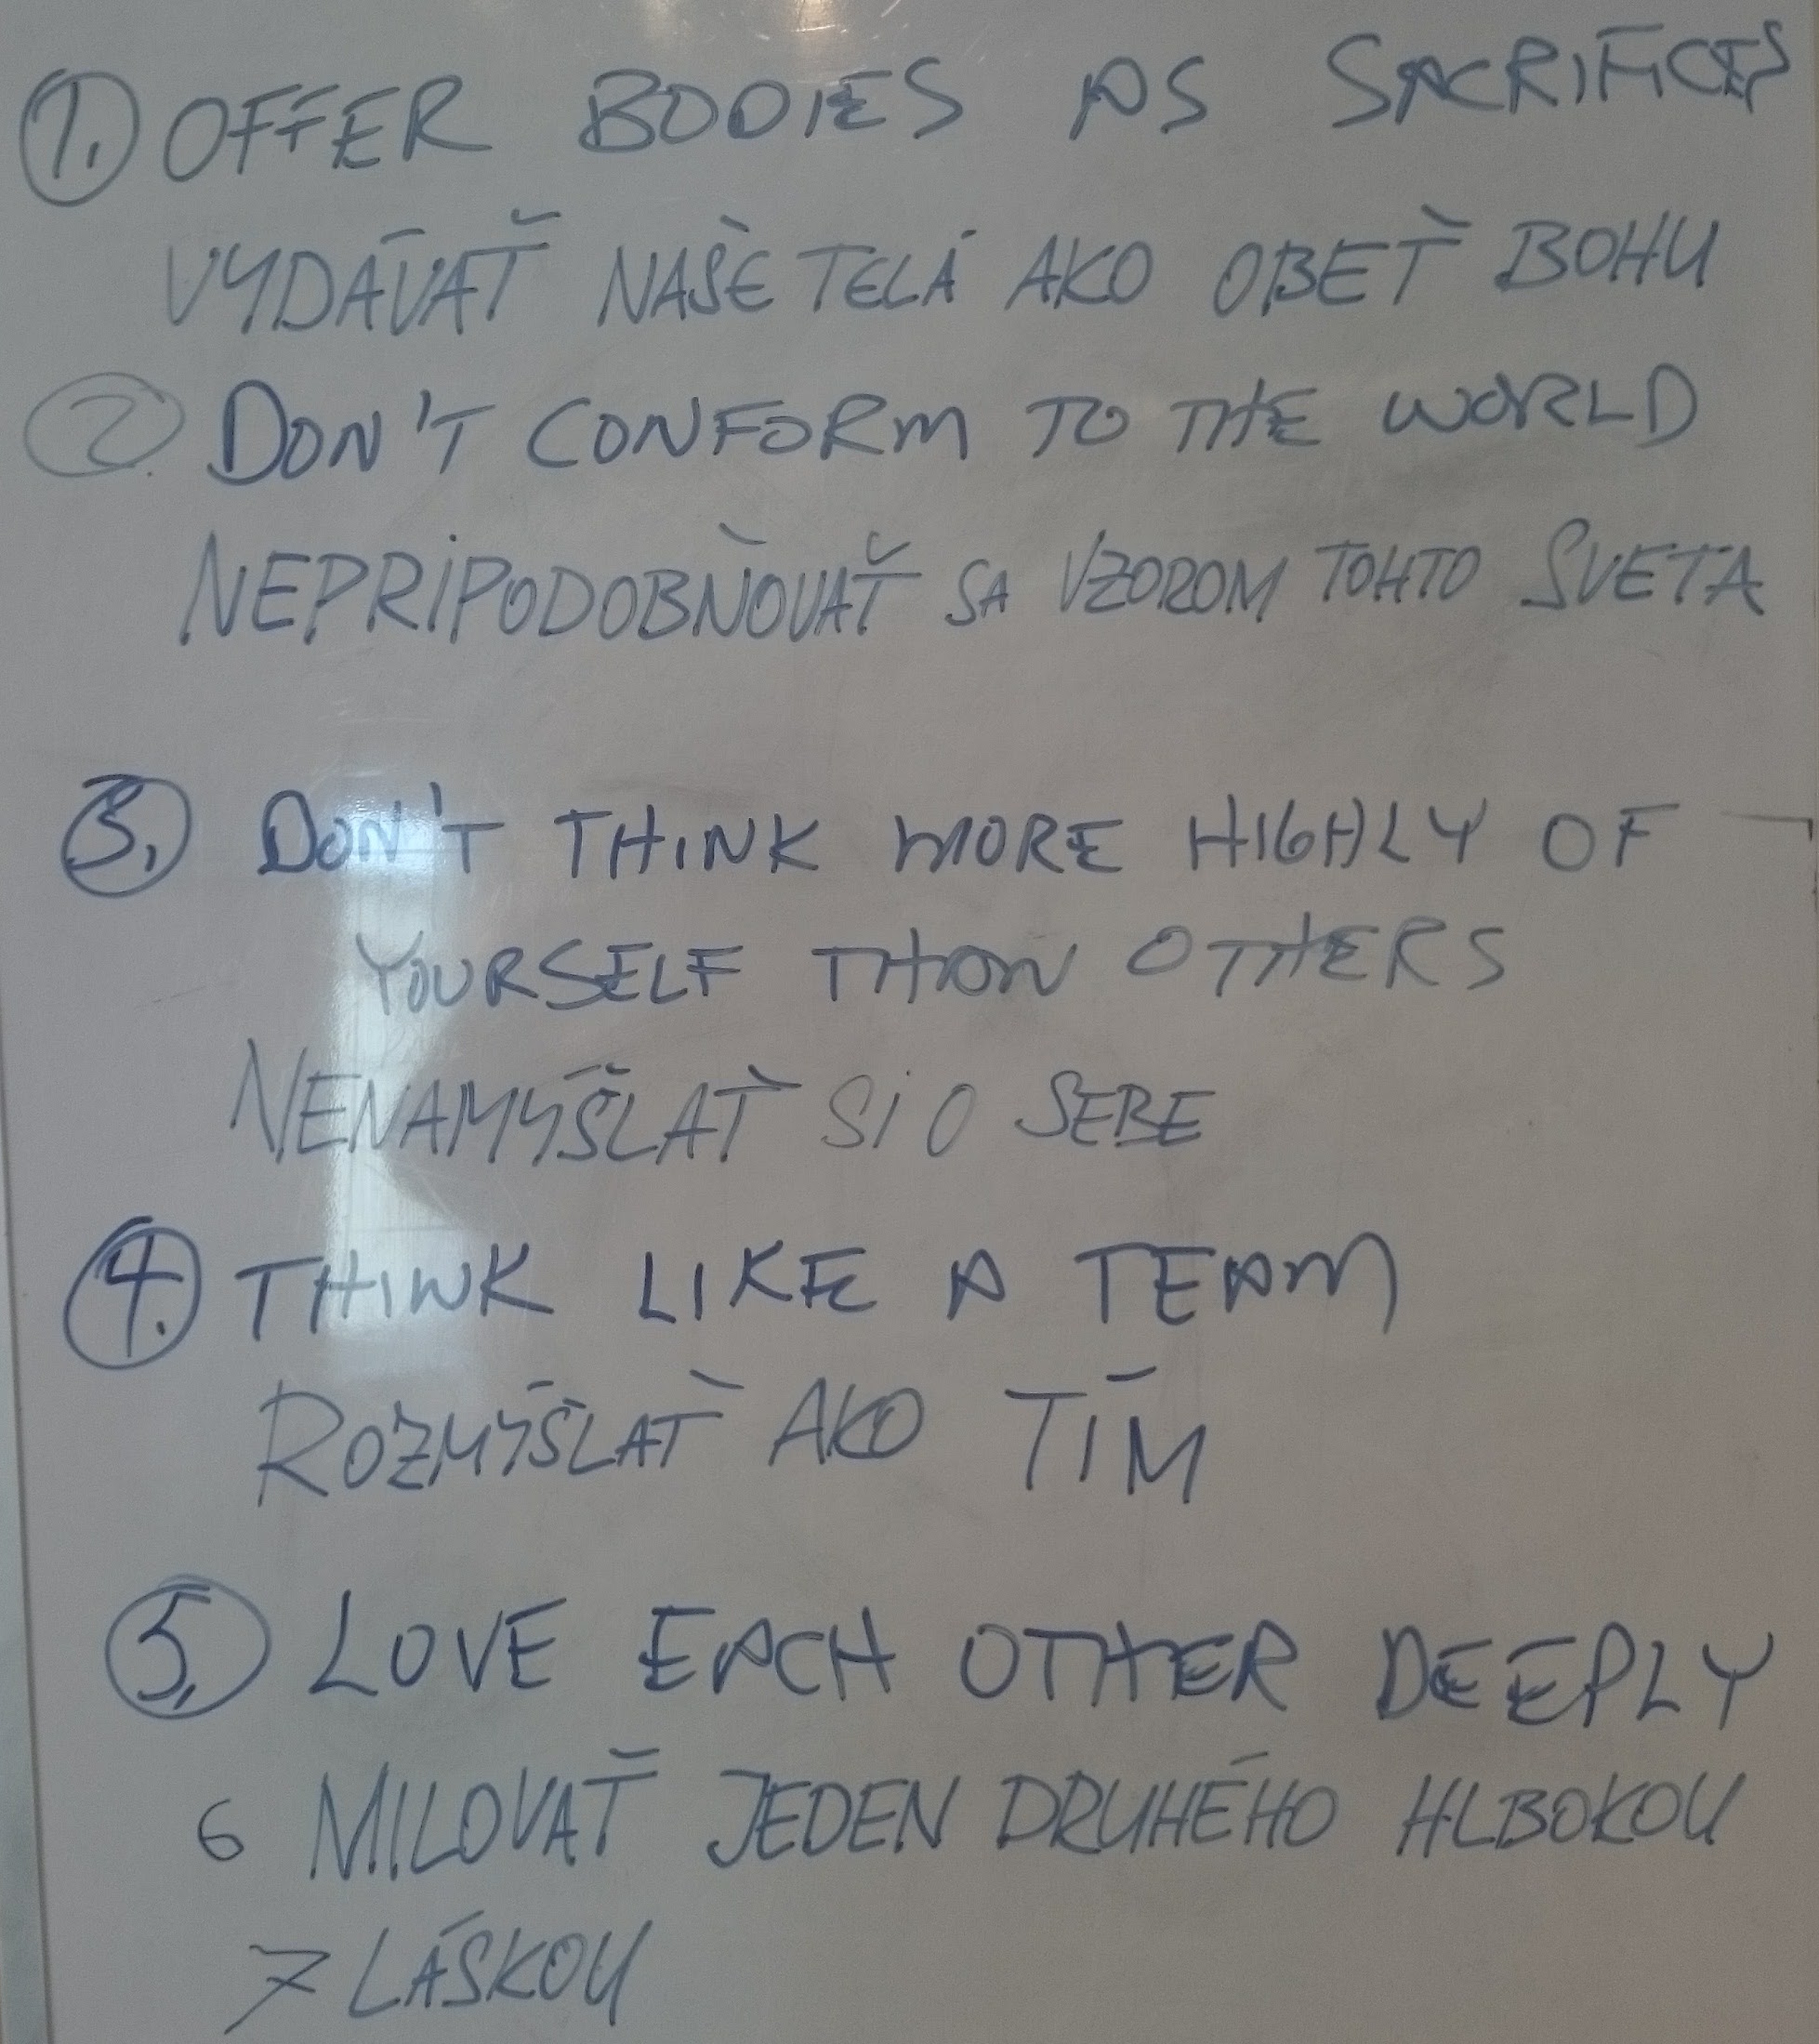 1. OFFER BODIES AS SACRIFICES
VYDÁVAŤ NAŠE TELÁ AKO OBEŤ BOHU
2. DON'T CONFORM TO THE WORLD
NEPRIPODOBŇOVAŤ SA VZOROM TOHTO SVETA
3. DON'T THINK MORE HIGHLY OF
YOURSELF THAN OTHERS
NENAMÝŠLAŤ SI O SEBE
4. THINK LIKE A TEAM
ROZMÝŠLAŤ AKO TÍM
5. LOVE EACH OTHER DEEPLY
6 MILOVAŤ JEDEN DRUHÉHO HLBOKOU
7 LÁSKOU